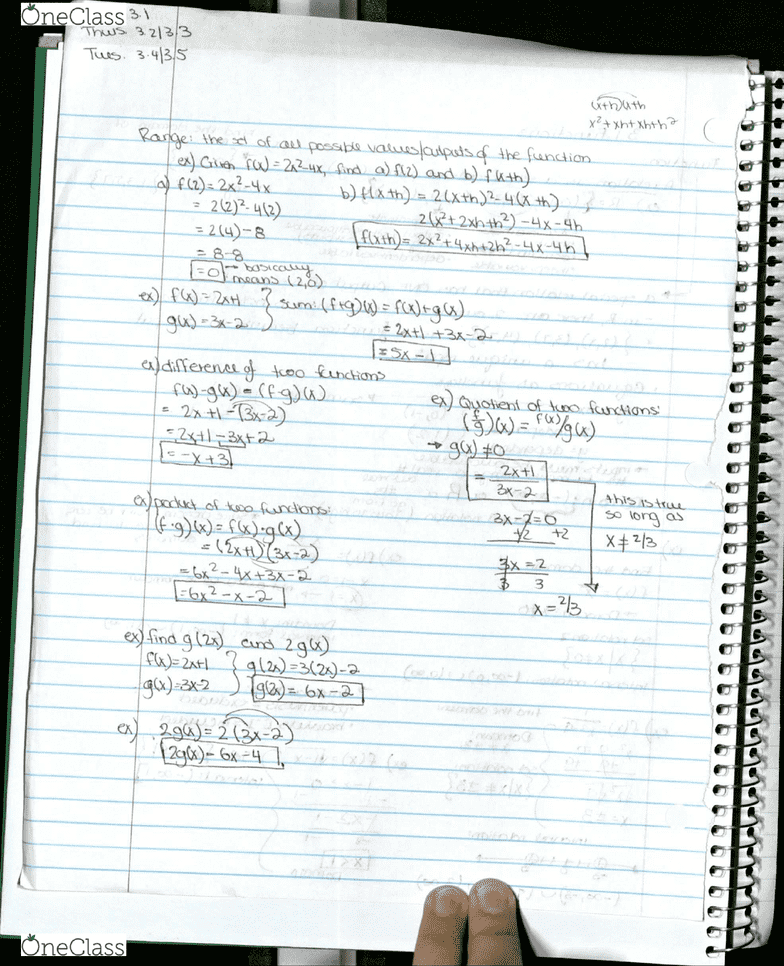 OneClass
3.1
Thurs 3.2/3.3
Tues. 3.4/3.5
(x+h)(x+h)
x²+xh+xh+h²
Range: the set of all possible values/outputs of the function
ex) Given f(x) = 2x²-4x, find a) f(2) and b) f(x+h)
a) f(2) = 2x²-4x
= 2(2)²-4(2)
= 2(4)-8
= 8-8
=0 → basically means (2,0)
b) f(x+h) = 2(x+h)²-4(x+h)
2(x²+2xh+h²)-4x-4h
f(x+h)= 2x²+4xh+2h²-4x-4h
ex) f(x)=2x+1
g(x)=3x-2
sum: (f+g)(x) = f(x)+g(x)
= 2x+1 +3x-2
= 5x-1
ex) difference of two functions
f(x)-g(x) = (f-g)(x)
= 2x+1-(3x-2)
= 2x+1-3x+2
= -x+3
ex) product of two functions:
(f·g)(x) = f(x)·g(x)
= (2x+1)(3x-2)
= 6x²-4x+3x-2
= 6x²-x-2
ex) Quotient of two functions:
(f/g)(x) = f(x)/g(x)
→ g(x) ≠0
= 2x+1
3x-2
this is true
so long as
x≠2/3
3x-2=0
+2 +2
3x=2
3 3
x=2/3
ex) find g(2x) and 2g(x)
f(x)=2x+1
g(x)=3x-2
g(2x)=3(2x)-2
g(2x)= 6x-2
ex) 2g(x)=2(3x-2)
2g(x)=6x-4
OneClass